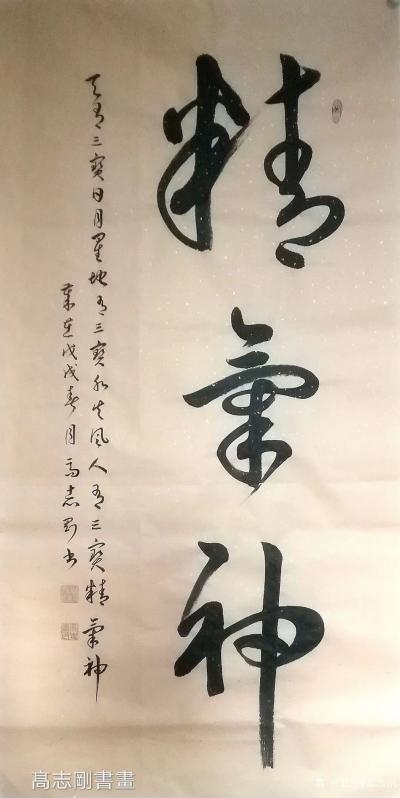 精氣神
天有三寶日月星地有三寶水火風人有三寶精氣神
歲在戊戌春月高志剛書
高志剛書畫